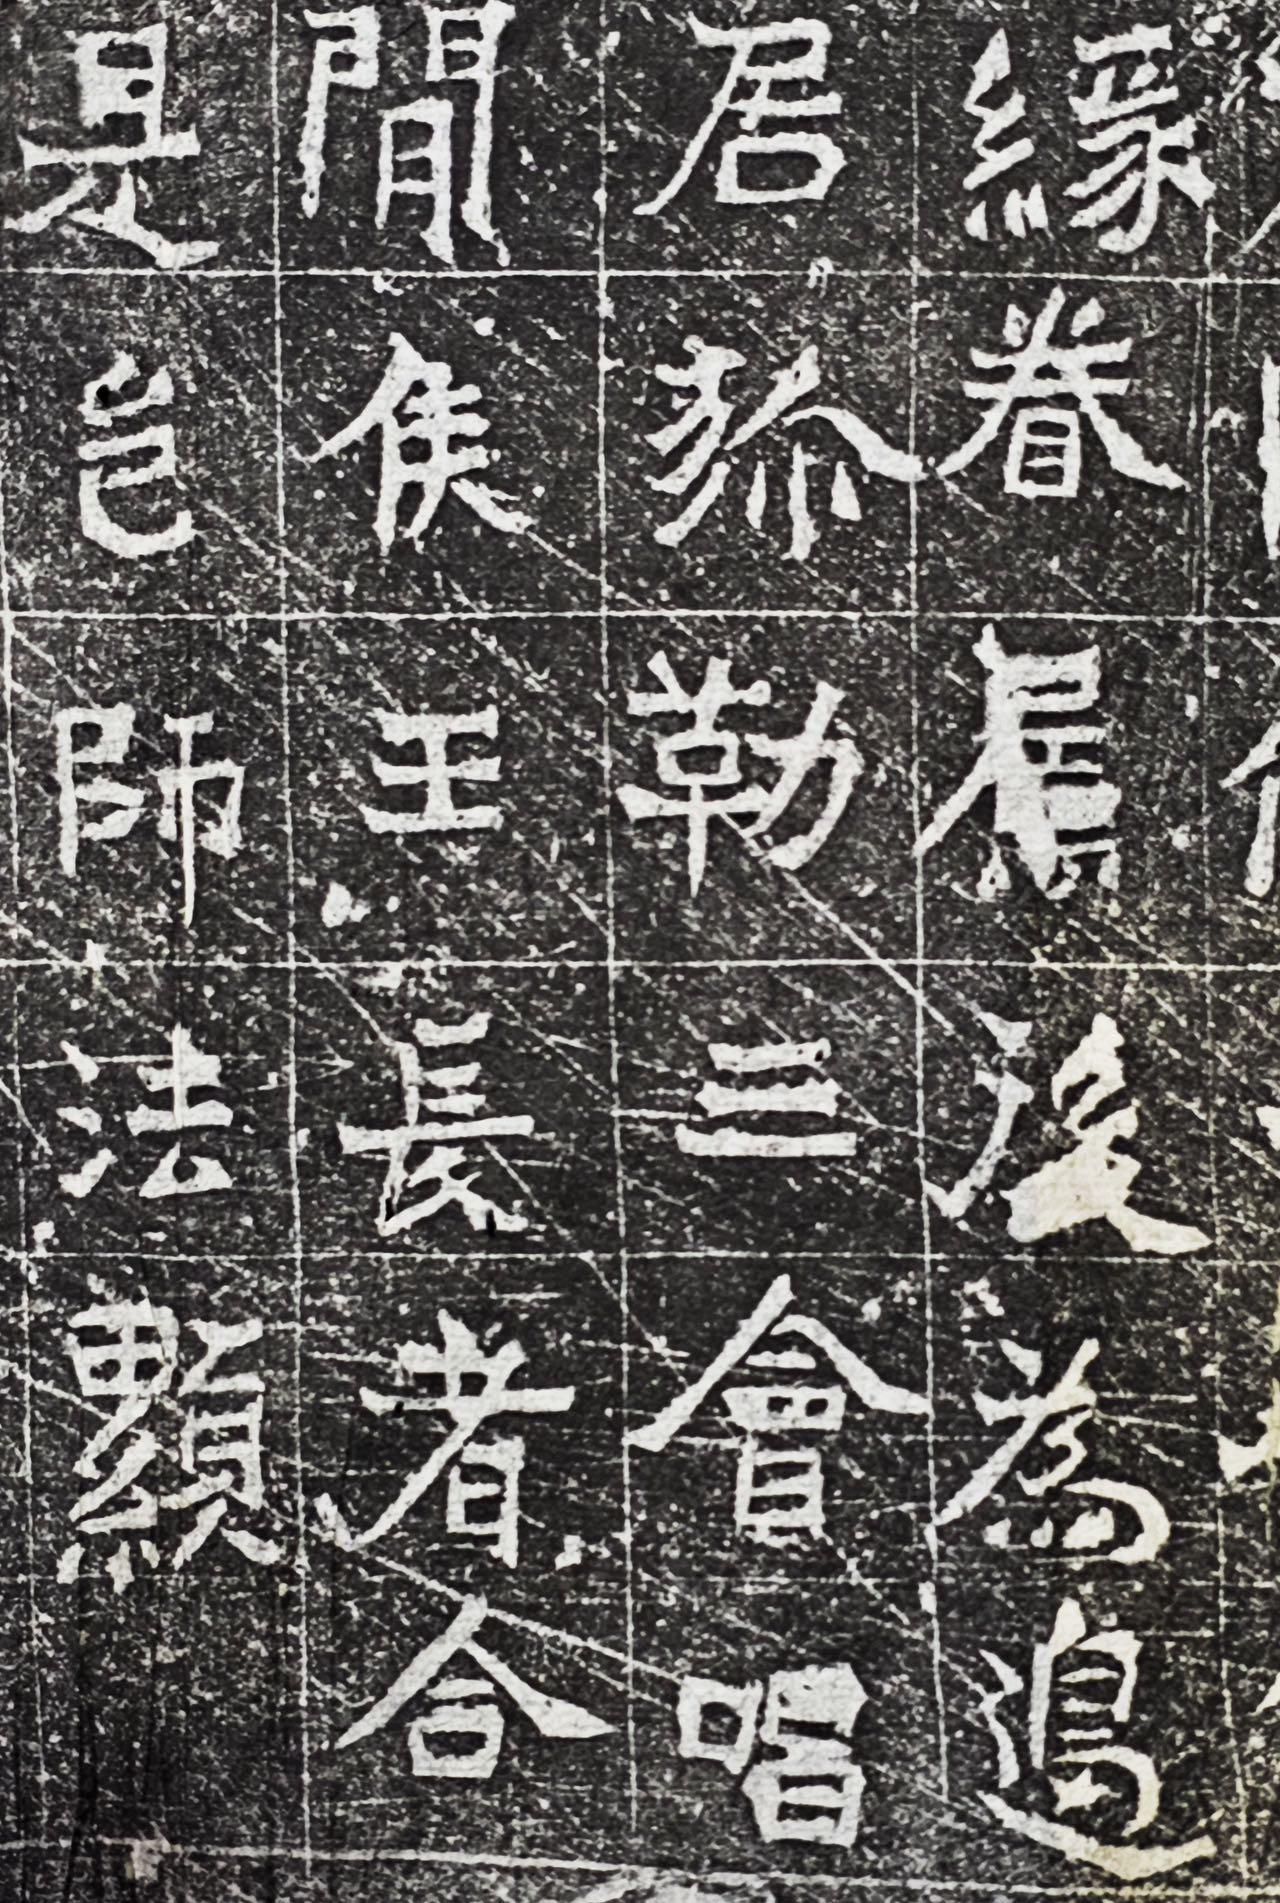 緣眷屬後為
居弥勒三會唱
間侯王長者合
是邑師法顯